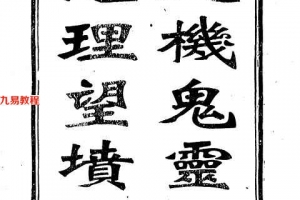 機鬼靈
理望墳
九易教程